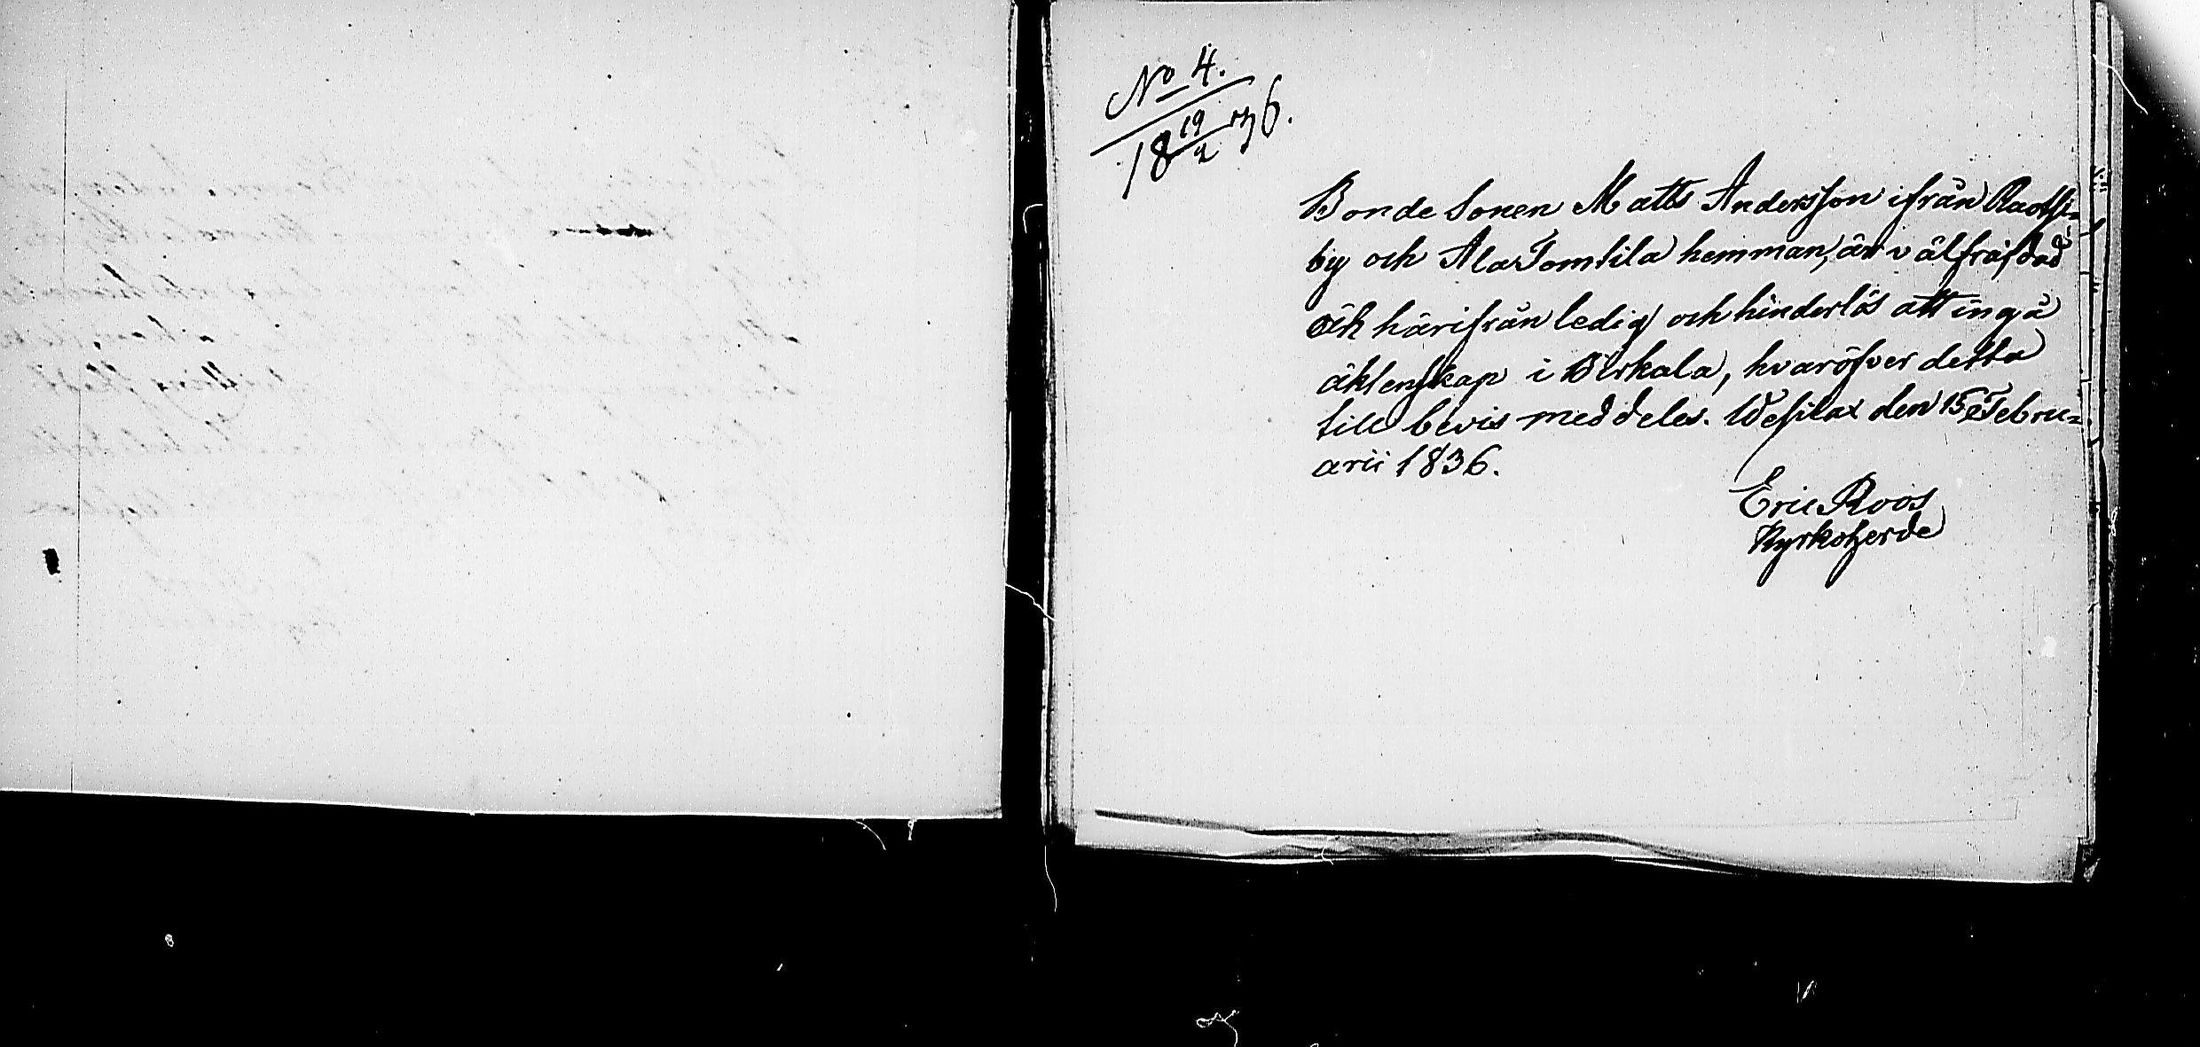 No 4.
18 19/2 36.
Bonde Sonen Matts Andersson ifrån
by och Ala Tomtila hemman, är välfräjdad
och härifrån ledig och hinderlös att ingå
äktenskap i Birkala, hvaröfver detta
till bevis meddeles. Wesilax den 15 Febru=
arii 1836.
Eric Roos
Kyrkoherde